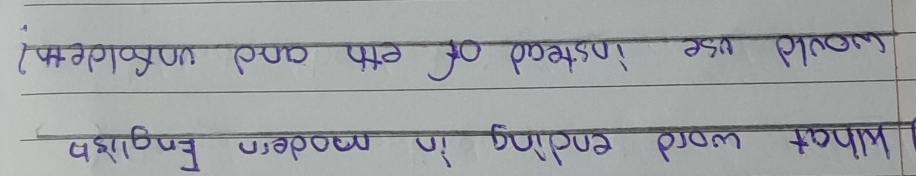 What word ending in modern English
would use instead of eth and unfoldeth?